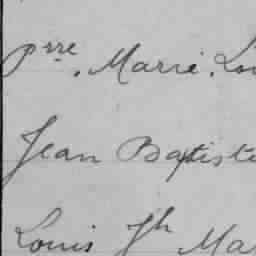 Pre. Marie. Lou
Jean Baptiste
Louis Jh Ma